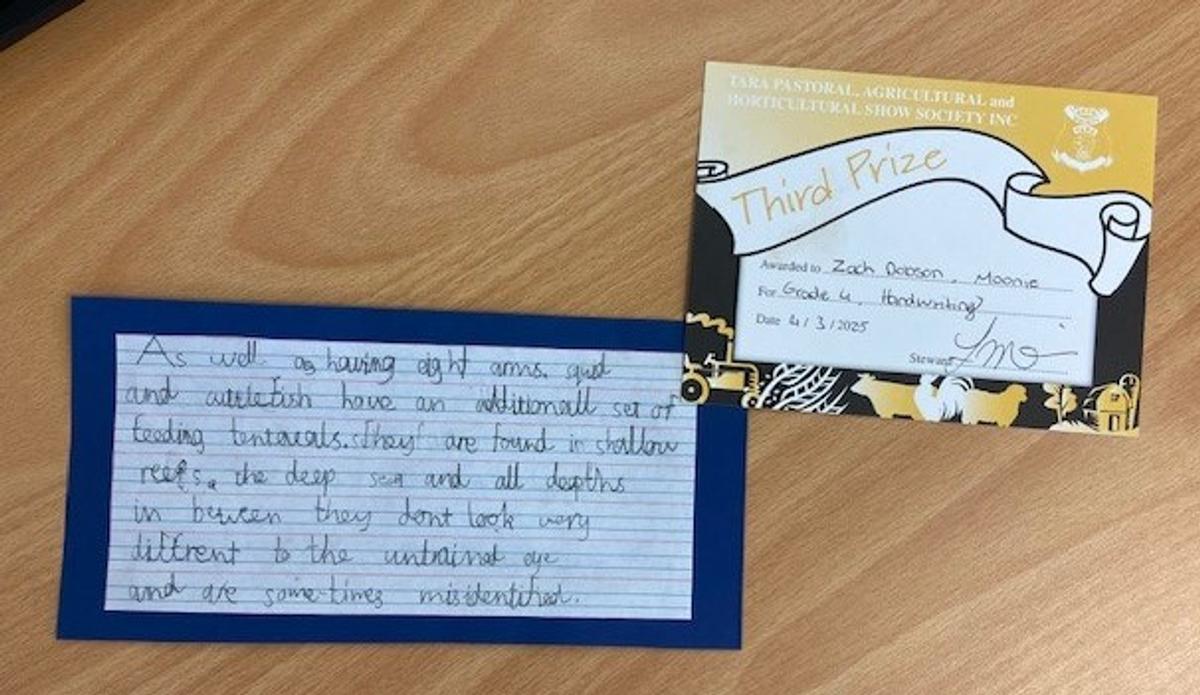 As well as having eight arms. squd
and cuttlefish have an additionall set of
feeding tentacals. They are found in shallow
reefs, the deep sea and all depths
in beween they dont look very
diffrent to the untrained eye
and are some-times misidentified.
TARA PASTORAL, AGRICULTURAL and
HORTICULTURAL SHOW SOCIETY INC
Third Prize
Awarded to Zach Dobson, Moonie
For Grade 4, Handwriting
Date 4/3/2025
Steward